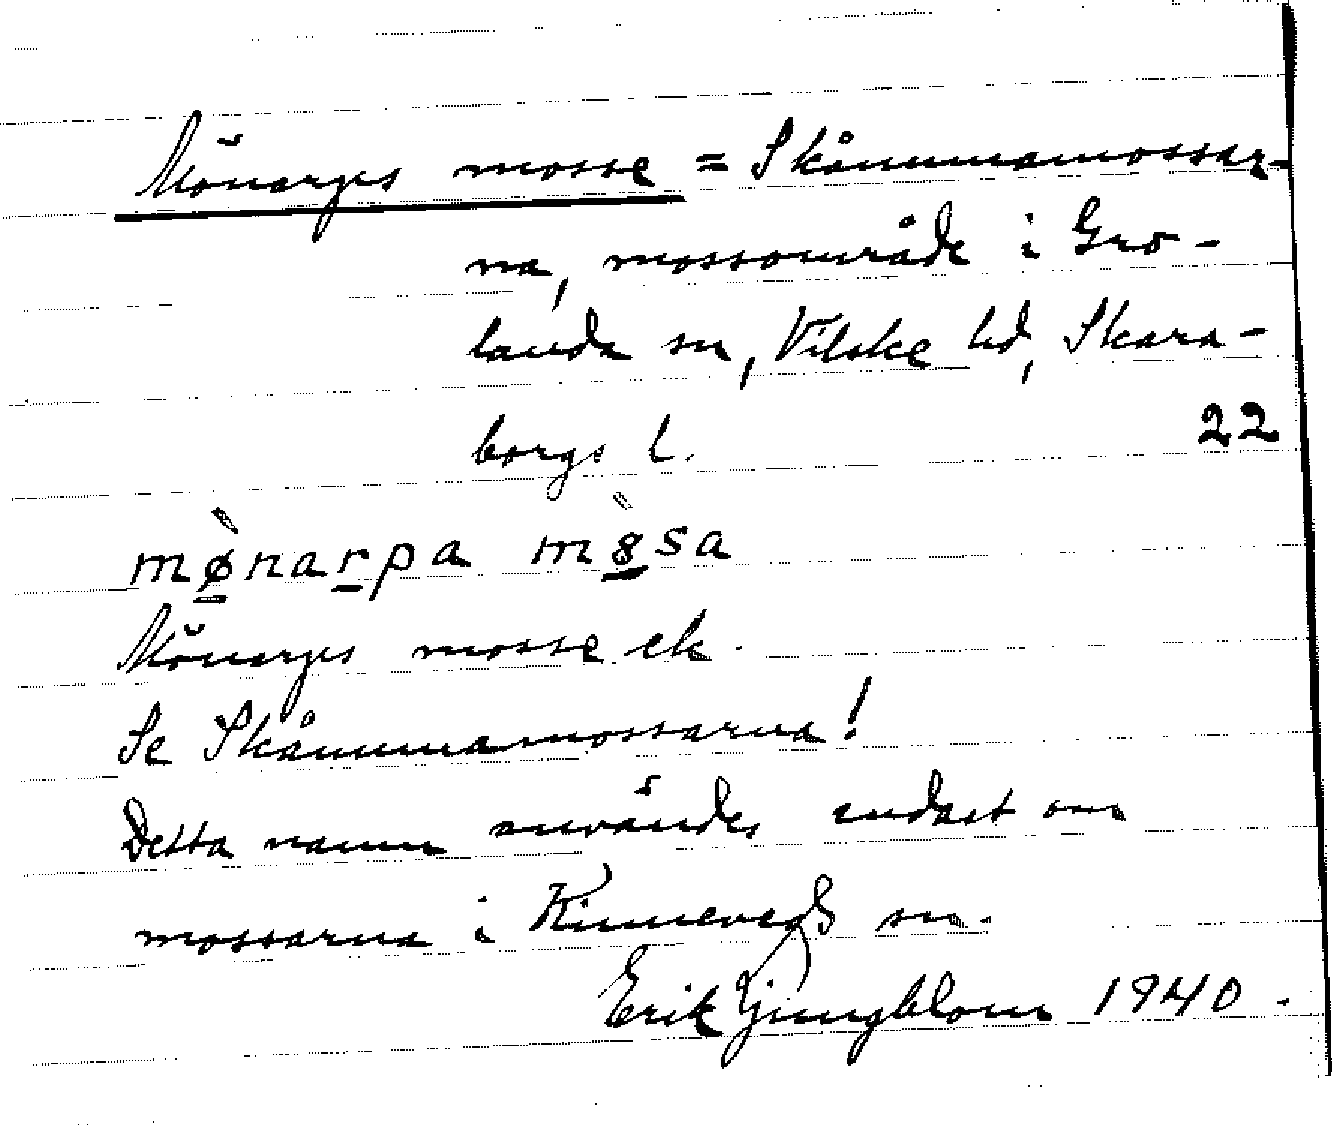 Mönarps mosse = Skånumamossar-
na, mossområde i Gro-
landa sn, Vilske hd, Skara-
borgs l. 22
mø̀narpa mòsa
Mönarps mosse ek.
Se Skånumamossarna!
Detta namn användes endast om
mossarna i Kinneveds sn.
Erik Ljungblom 1940.